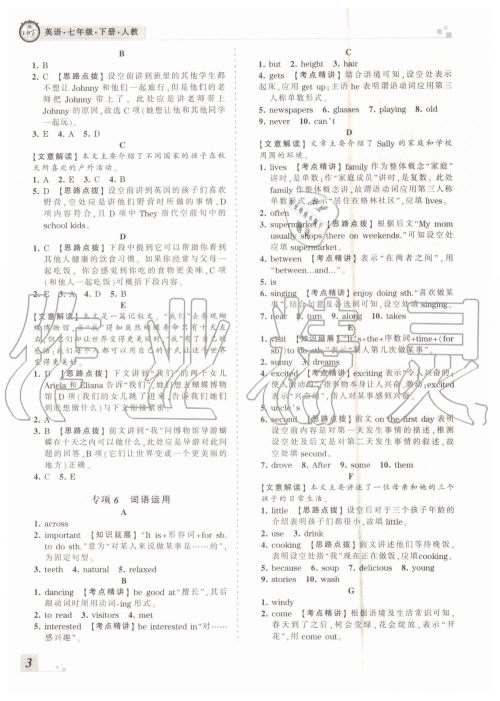 英语·七年级·下册·人教
B
1. B
2. C 【思路点拨】设空前讲到班里的其他学生都
不想让 Johnny 和他们一起旅行,但是老师却
把 Johnny 带上了。此处应是讲老师带上
Johnny 的原因,故选 C 项(她想让他和其他同学
一起玩)。
3. E 4. A 5. D
C
【文意解读】本文主要介绍了不同国家的孩子在春
天所进行的户外活动。
1. A 2. E 3. C 4. B
5. D 【思路点拨】设空前讲到英国的孩子们喜欢
野营,空处应是讲他们野营时所做的事情,D
项内容符合,且 D 项中 They 指代空前句中的
school kids。
D
1. D 【思路点拨】下段中提到已可以帮助你看到
其他人健康的饮食习惯。如果你经常与父母一
起吃饭,你会感觉到你吃的食物更美味,C 项
2. B 3. A 4. E 5. B
E
2. D 【思路点拨】
Ariela 和 Eliana 告诉"我们"她们想去蝴蝶博物
馆。D 项(我们的女儿跳了进来,告诉我们她们
到底想做什么)与下文衔接紧密。
3. B 【思路点拨】前文讲到"我"问博物馆导游蝴
蝶在十天之内可以做什么,此处是导游对此问
题的回答。B 项(它们让世界变成一个更美丽的
地方)正确。
4. C 5. E
专项 6 词语运用
A
1. across
2. important 【知识延展】"It is+形容词+for sb.
to do sth."意为"对某人来说做某事是……的",
为固定句型。
3. teeth 4. natural 5. relaxed
B
1. dancing 【考点精讲】be good at"擅长",其后
跟动词时须用动词-ing 形式。
2. to read 3. visitors 4. met
5. interested 【考点精讲】be interested in"对……
感兴趣"。
3
C
1. but 2. height 3. hair
4. gets 【考点精讲】结合语境可知,设空处表示
起床,应用 get up;主语 he 表明谓语动词应用第三
人称单数形式。
5. newspapers 6. glasses 7. playing 8. old
9. never 10. can't
D
【文意解读】文章主要介绍了 Sally 的家庭和学校
周围的环境。
1. lives 【考点精讲】family 作为整体概念"家庭"
讲时,是单数,作"家庭成员"讲时,是复数。此处
family 作整体概念,故谓语动词应用第三人称
单数形式,表示"居住在格林社区",应填 lives。
2. often
3. supermarket 【思路点拨】根据后文"My mom
usually shops there on weekends."可知设空处
应填 supermarket。
4. between 【考点精讲】表示"在两者之间",用
"between...and..."。
5. is
6. singing 【考点精讲】enjoy doing sth."喜欢做
某事",结合句意及备选词可知,设空处应填 singing。
7. near 8. turn 9. along 10. takes
E
1. visit 【知识延展】"It's+the+序数词+time+(for
sb) to do sth."表示"某人第几次做某事"。
2. sunny 3. dreams
4. excited 【考点精讲】exciting 表示"令人兴奋的;
使人激动的",指事物本身让人兴奋、激动;excited
表示"兴奋的",指人对某事感到兴奋、激动。
5. uncle's
6. second 【思路点拨】前文 on the first day 表明
设空前内容是对第一天发生事情的描述,推测
设空处及后文是对第二天发生事情的叙述,故
空处填 second。
7. drove 8. After 9. some 10. them
F
【文意解读】本文主要讲述了一位母亲和她的三个
孩子的日常生活。
1. little 【思路点拨】设空后对于三个孩子年龄的
介绍表明孩子们都很小,故填 little。
2. use 3. drink
4. cooking 【思路点拨】前文讲述他们等待晚饭,
表明设空处指"我"现在正在做饭,应填 cooking。
5. because 6. soup 7. delicious 8. young
9. stories 10. wash
G
1. windy
2. come out 【思路点拨】根据语境及生活常识可知,
春天到了之后,树会变绿,花会绽放,表示"开
花"应用 come out。